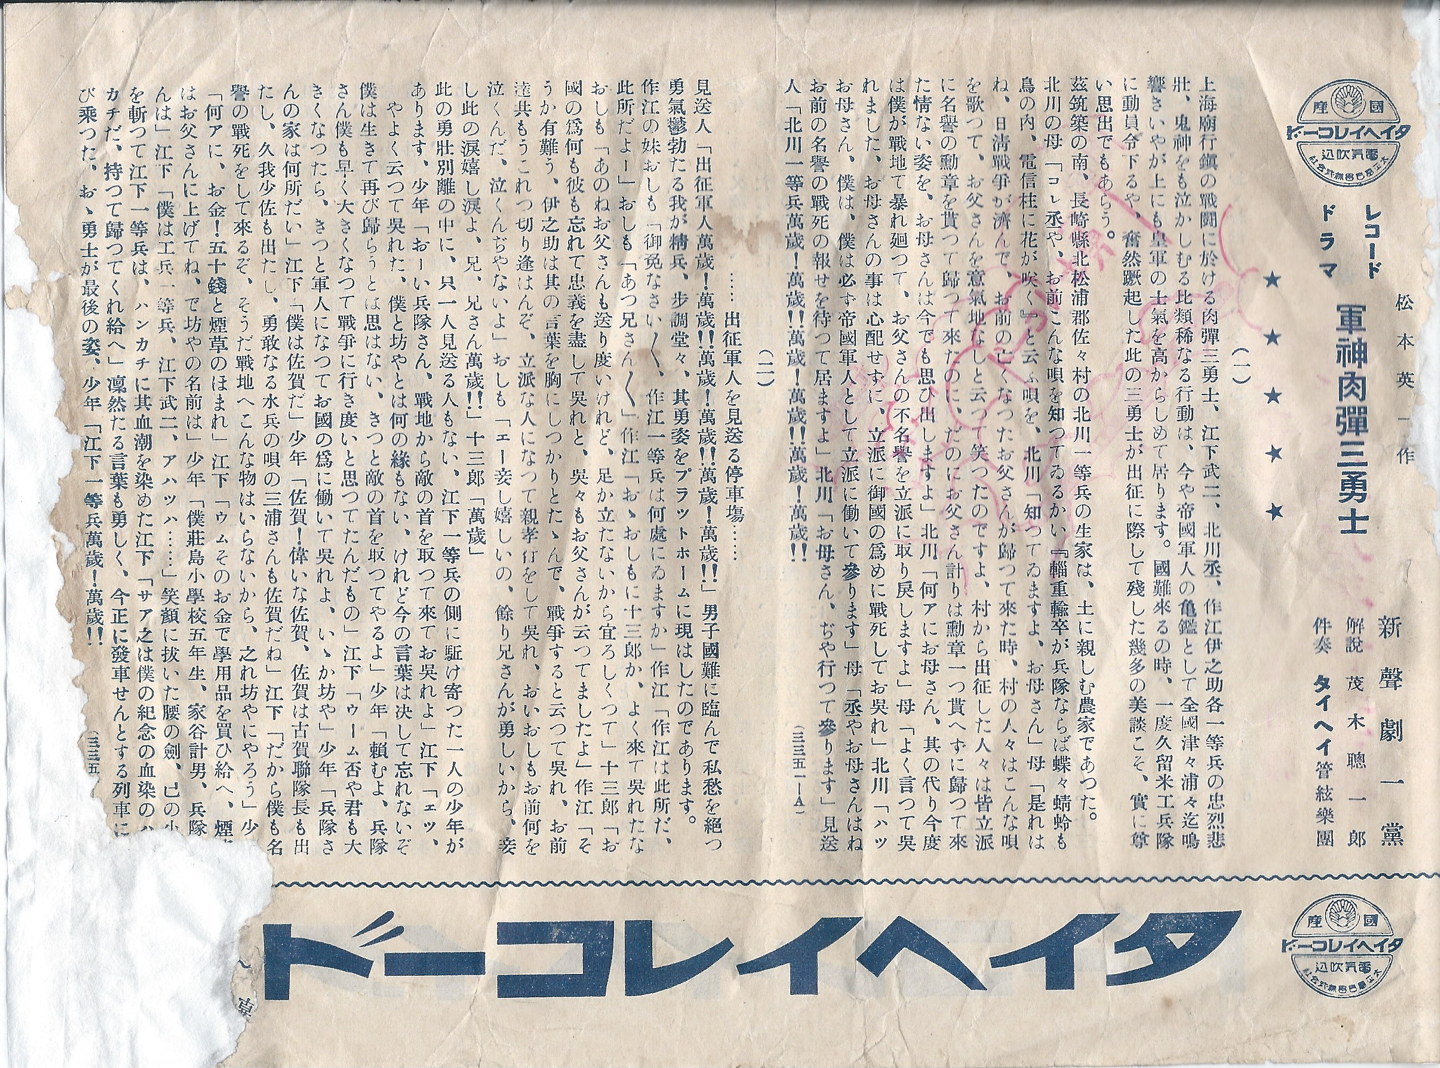 國產
タイヘイレコード
電気吹込
レコード
ドラマ
軍神肉彈三勇士
松本英一作
新聲劇一黨
解說 茂木聰一郎
件奏 タイヘイ管絃樂團
★★★★★
(一)
上海廟行鎭の戰鬪に於ける肉彈三勇士、江下武二、北川丞、作江伊之助各一等兵の忠烈悲
壯、鬼神をも泣かしむる比類稀なる行動は、今や帝國軍人の龜鑑として全國津々浦々迄鳴
響きいやが上にも皇軍の士氣を高からしめて居ります。國難來るの時、一度久留米工兵隊
に動員令下るや、奮然蹶起した此の三勇士が出征に際して殘した幾多の美談こそ、實に尊
い思出でもあらう。
茲筑築の南、長崎縣北松浦郡佐々村の北川一等兵の生家は、土に親しむ農家であつた。
北川の母「コレ丞や、お前こんな唄を知つてゐるかい『輜重輸卒が兵隊ならば蝶々蜻蛉も
鳥の內、電信柱に花が咲く』と云ふ唄を、北川「知つてゐますよ、お母さん」母「是れは
ね、日淸戰爭が濟んで、お前の亡くなつたお父さんが歸つて來た時、村の人々はこんな唄
を歌つて、お父さんを意氣地なしと云つて笑つたのですよ、村から出征した人々は皆立派
に名譽の勳章を貰つて歸つて來たのに、たのにお父さん計りは勳章一つ貰へずに歸つて來
た情ない姿を、お母さんは今でも思ひ出しますよ」北川「何アにお母さん、其の代り今度
は僕が戰地で暴れ廻つて、お父さんの不名譽を立派に取り戾しますよ」母「よく言つて吳
れました、お母さんの事は心配せずに、立派に御國の爲めに戰死してお吳れ」北川「ハッ
お母さん、僕は、僕は必ず帝國軍人として立派に働いて參ります」母「丞やお母さんはね
お前の名譽の戰死の報せを待つて居ますよ」北川「お母さん、ぢや行つて參ります」見送
人「北川一等兵萬歲!萬歲!!萬歲!萬歲!!萬歲!萬歲!!
(三三五一—A)
(二)
……出征軍人を見送る停車場……
見送人「出征軍人萬歲!萬歲!!萬歲!萬歲!!萬歲!萬歲!!」男子國難に臨んで私愁を絕つ
勇氣鬱勃たる我が精兵、步調堂々、其勇姿をプラットホームに現はしたのであります。
作江の妹おしも「御免なさい〱、作江一等兵は何處にゐますか」作江「作江は此所だ、
此所だよー」おしも「あつ兄さん〱」作江「おゝおしもに十三郎か、よく來て吳れたな
おしも「あのねお父さんも送り度いけれど、足か立たないから宜ろしくつて」十三郎「お
國の爲何も彼も忘れて忠義を盡して吳れと、吳々もお父さんが云つてましたよ」作江「そ
うか有難う、伊之助は其の言葉を胸にしつかりとたゝんで、戰爭すると云つて吳れ、お前
達共もうこれつ切り逢はんぞ、立派な人になつて親孝行をして吳れ、おいおしもお前何を
泣くんだ、泣くんぢやないよ」おしも「エー妾し嬉しいの、餘り兄さんが勇しいから、妾
し此の淚嬉し淚よ、兄、兄さん萬歲!!」十三郎「萬歲」
此の勇壯別離の中に、只一人見送る人もない、江下一等兵の側に駈け寄つた一人の少年が
あります、少年「おーい兵隊さん、戰地から敵の首を取つて來てお吳れよ」江下「エッ、
やよく云つて吳れた、僕と坊やとは何の緣もない、けれど今の言葉は決して忘れないぞ
僕は生きて再び歸らうとは思はない、きつと敵の首を取つてやるよ」少年「賴むよ、兵隊
さん僕も早く大きくなつて戰爭に行き度いと思つてたんだもの」江下「ウーム否や君も大
きくなつたら、きつと軍人になつてお國の爲に働いて吳れよ、いゝか坊や」少年「兵隊さ
んの家は何所だい」江下「僕は佐賀だ」少年「佐賀!偉いな佐賀、佐賀は古賀聯隊長も出
たし、久我少佐も出たし、勇敢なる水兵の唄の三浦さんも佐賀だね」江下「だから僕も名
譽の戰死をして來るぞ、そうだ戰地へこんな物はいらないから、之れ坊やにやろう」少
「何アに、お金!五十錢と煙草のほまれ」江下「ウムそのお金で學用品を買ひ給へ、煙
はお父さんに上げてね、で坊やの名前は」少年「僕莊島小學校五年生、家谷計男、兵隊
んは」江下「僕は工兵一等兵、江下武二、アハッハ……」笑顏に拔いた腰の劍、己の小
を斬つて江下一等兵は、ハンカチに其血潮を染めた江下「サア之は僕の紀念の血染のハ
カチだ、持つて歸つてくれ給へ」凜然たる言葉も勇しく、今正に發車せんとする列車に
び乘つた、おゝ勇士が最後の姿、少年「江下一等兵萬歲!萬歲!!
(三三五
國產
タイヘイレコード
電気吹込
タイヘイレコード